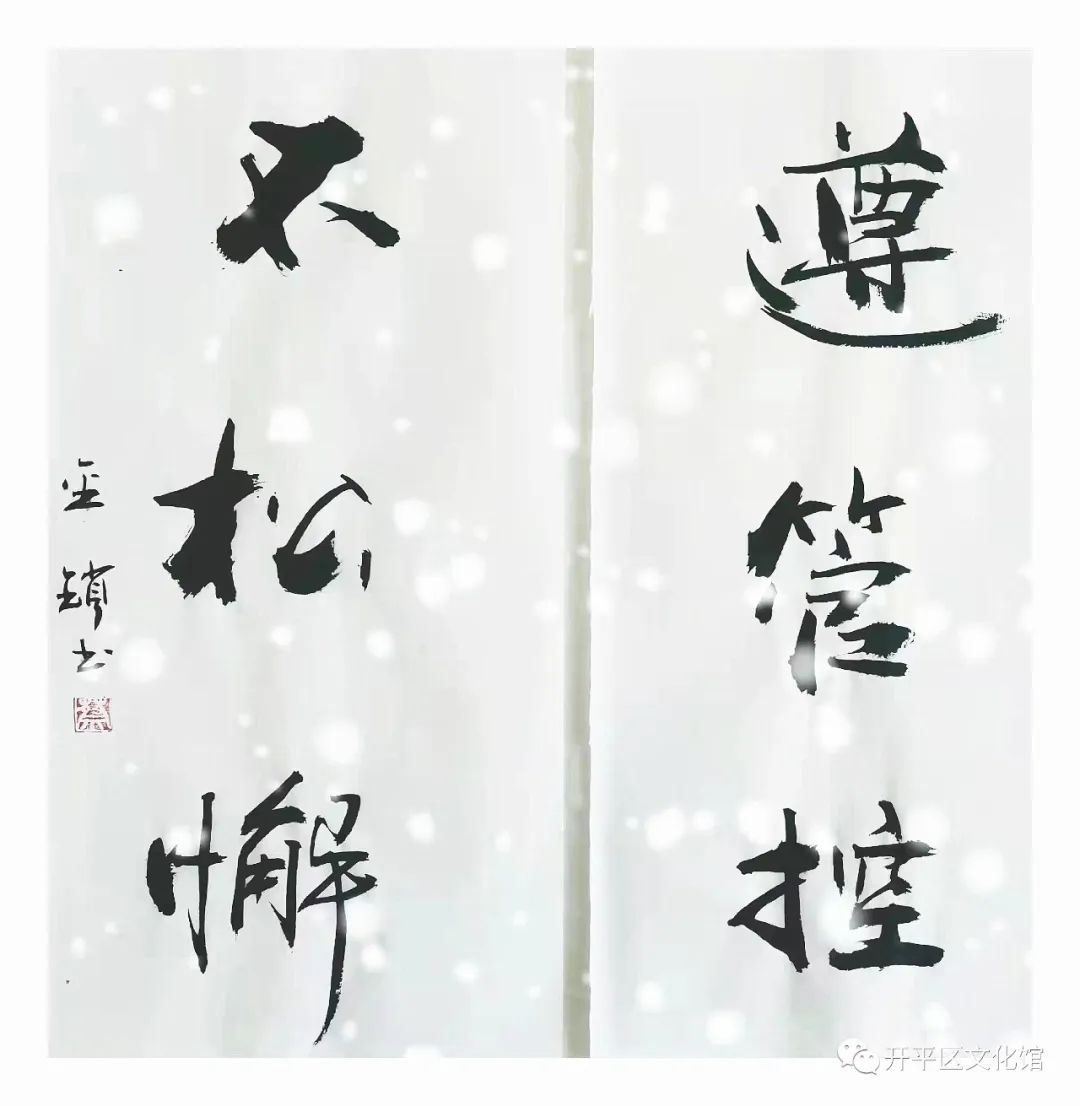 遵管控
不松懈
金锁书
开平区文化馆